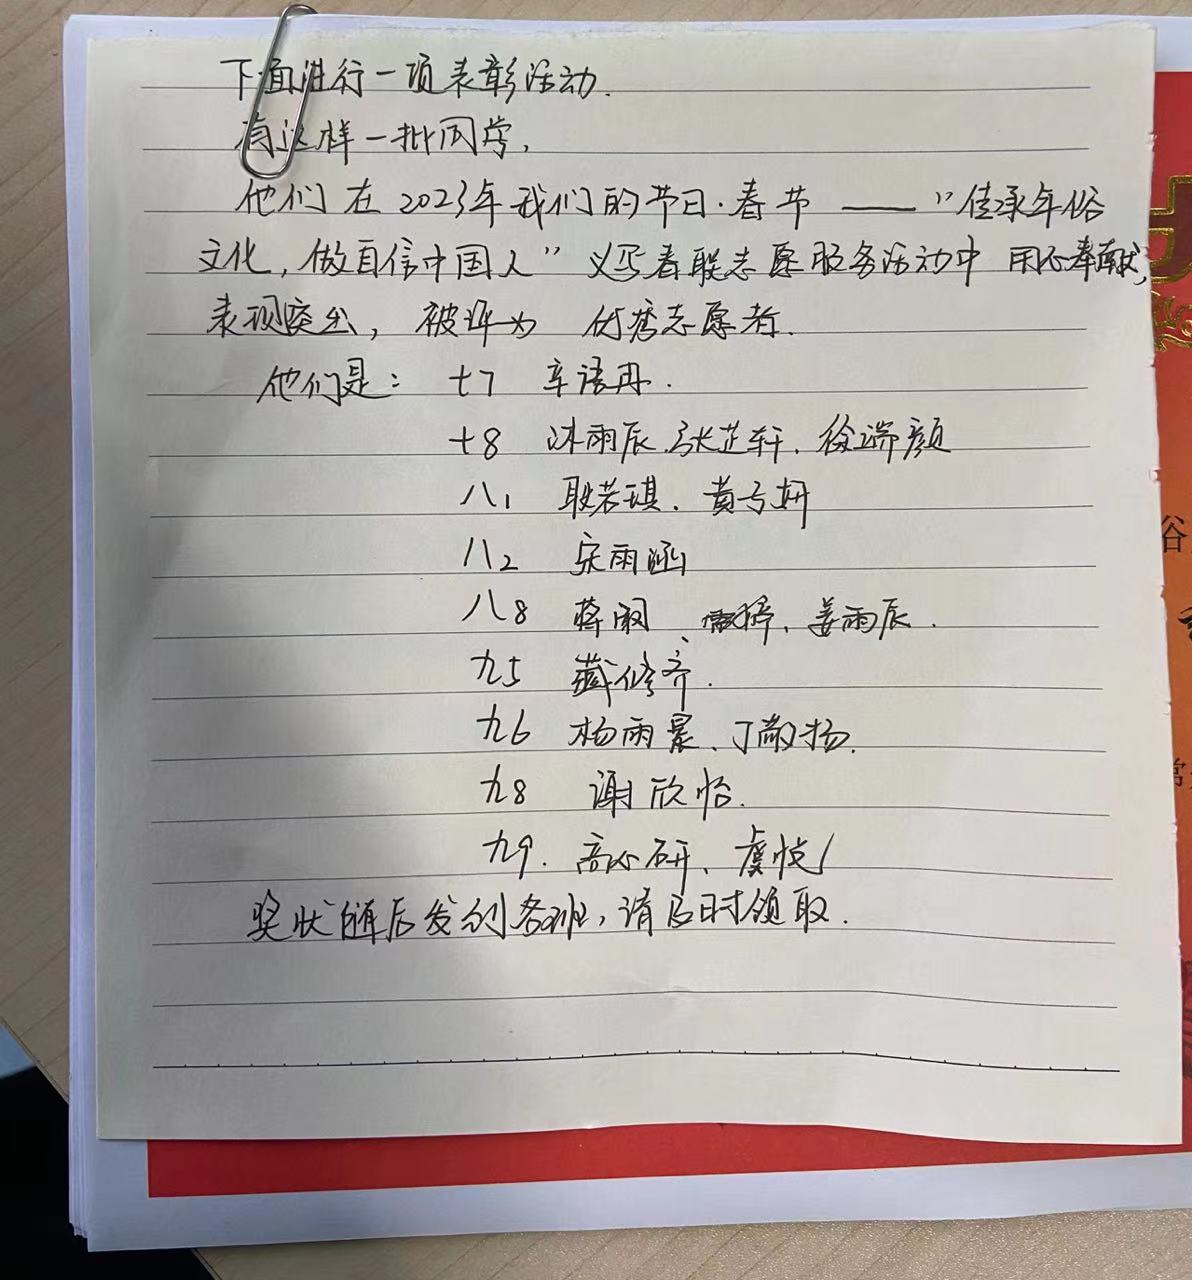 下面进行一项表彰活动.
有这样一批同学,
他们在2023年我们的节日·春节 —— "传承年俗
文化,做自信中国人" 义写春联志愿服务活动中 用心奉献,
表现突出, 被评为 优秀志愿者.
他们是: 七7 车语冉.
七8 沐雨辰.张芷轩.徐端颜
八1 耿若琪.黄亏妍
八2 宋雨涵
八8 蒋 、姜雨辰.
九5 臧修齐.
九6 杨雨晨、丁敬扬.
九8 谢欣怡.
九9. 高心研、虞悦
奖状随后发到各班,请及时领取.
俗